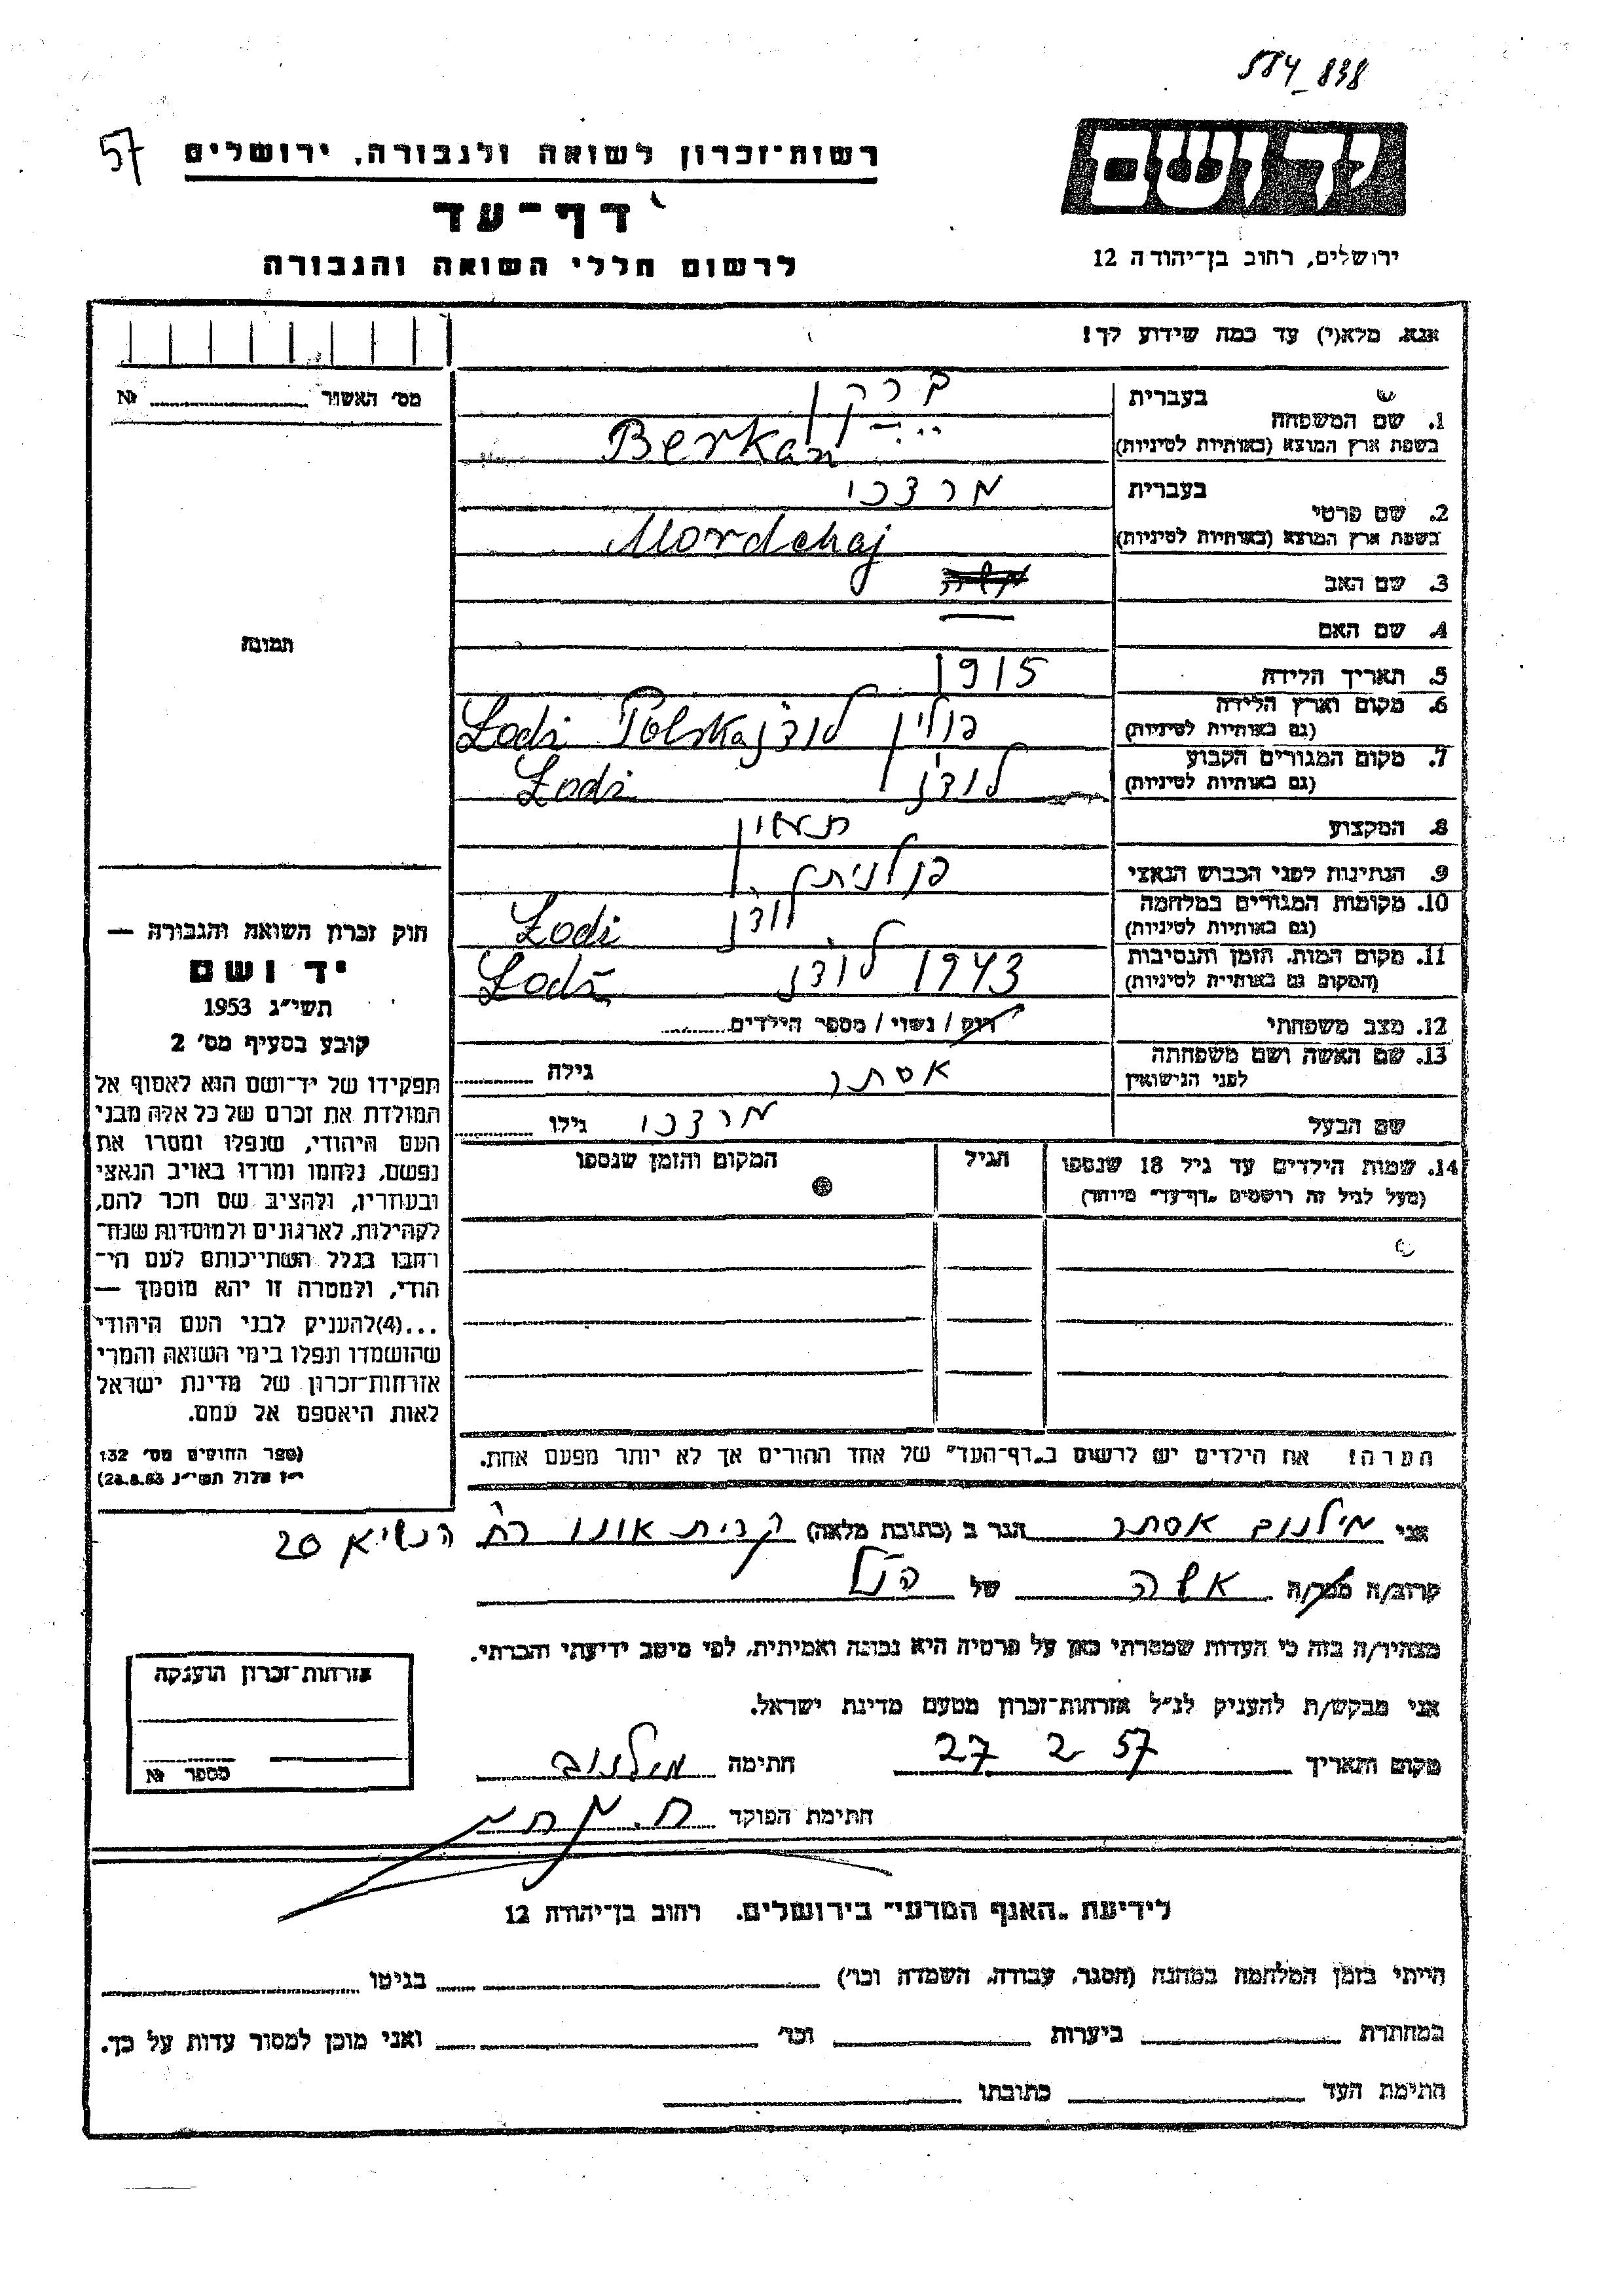 584_838
57
יד ושם
רשות־זכרון לשואה ולגבורה, ירושלים
דף־עד
לרשום חללי השואה והגבורה
ירושלים, רחוב בן־יהודה 12
אנא, מלא(י) עד כמה שידוע לך!
מס׳ האשור № 
1. שם המשפחה
בעברית ברקן
בשפת ארץ המוצא (באותיות לטיניות) Berkan
2. שם פרטי
בעברית מרדכי
בשפת ארץ המוצא (באותיות לטיניות) Mordchaj
3. שם האב
4. שם האם
5. תאריך הלידה 1915
6. מקום וארץ הלידה (גם באותיות לטיניות) פולין לודז Lodz Polska
7. מקום המגורים הקבוע (גם באותיות לטיניות) לודז Lodz
8. המקצוע
9. הנתינות לפני הכבוש הנאצי פולנית
10. מקומות המגורים במלחמה (גם באותיות לטיניות) לודז Lodz
11. מקום המות, הזמן והנסיבות (המקום גם באותיות לטיניות) 1943 לודז Lodz
12. מצב משפחתי רווק / נשוי / מספר הילדים
13. שם האשה ושם משפחתה לפני הנישואין אסתר גילה
שם הבעל מרדכי גילו
14. שמות הילדים עד גיל 18 שנספו
(מעל לגיל זה רושמים „דף־עד״ מיוחד)
הגיל
המקום והזמן שנספו
הערה: את הילדים יש לרשום ב„דף־העד״ של אחד ההורים אך לא יותר מפעם אחת.
תמונה
חוק זכרון השואה והגבורה —
יד ושם
תשי״ג 1953
קובע בסעיף מס׳ 2
תפקידו של יד־ושם הוא לאסוף אל
המולדת את זכרם של כל אלה מבני
העם היהודי, שנפלו ומסרו את
נפשם, נלחמו ומרדו באויב הנאצי
ובעוזריו, ולהציב שם וזכר להם,
לקהילות, לארגונים ולמוסדות שנח־
רבו בגלל השתייכותם לעם הי־
הודי, ולמטרה זו יהא מוסמך —
...(4)להעניק לבני העם היהודי
שהושמדו ונפלו בימי השואה והמרי
אזרחות־זכרון של מדינת ישראל
לאות היאספם אל עמם.
(ספר החוקים מס׳ 132
י״ז אלול תשי״ג 28.8.53)
אני מילנוב אסתר הגר ב (כתובת מלאה) קרית אונו רח הנשיא 20
קרוב/ה מכר/ה אשה של הנ״ל
מצהיר/ה בזה כי העדות שמסרתי כאן על פרטיה היא נכונה ואמיתית, לפי מיטב ידיעתי והכרתי.
אני מבקש/ת להעניק לנ״ל אזרחות־זכרון מטעם מדינת ישראל.
מקום ותאריך 27 2 57 חתימה מילנוב
חתימת הפוקד
אזרחות־זכרון הוענקה
מספר №
לידיעת „האגף המדעי״ בירושלים, רחוב בן־יהודה 12
הייתי בזמן המלחמה במחנה (הסגר, עבודה, השמדה וכו׳) בגיטו
במחתרת ביערות וכו׳ ואני מוכן למסור עדות על כך.
חתימת העד כתובתו